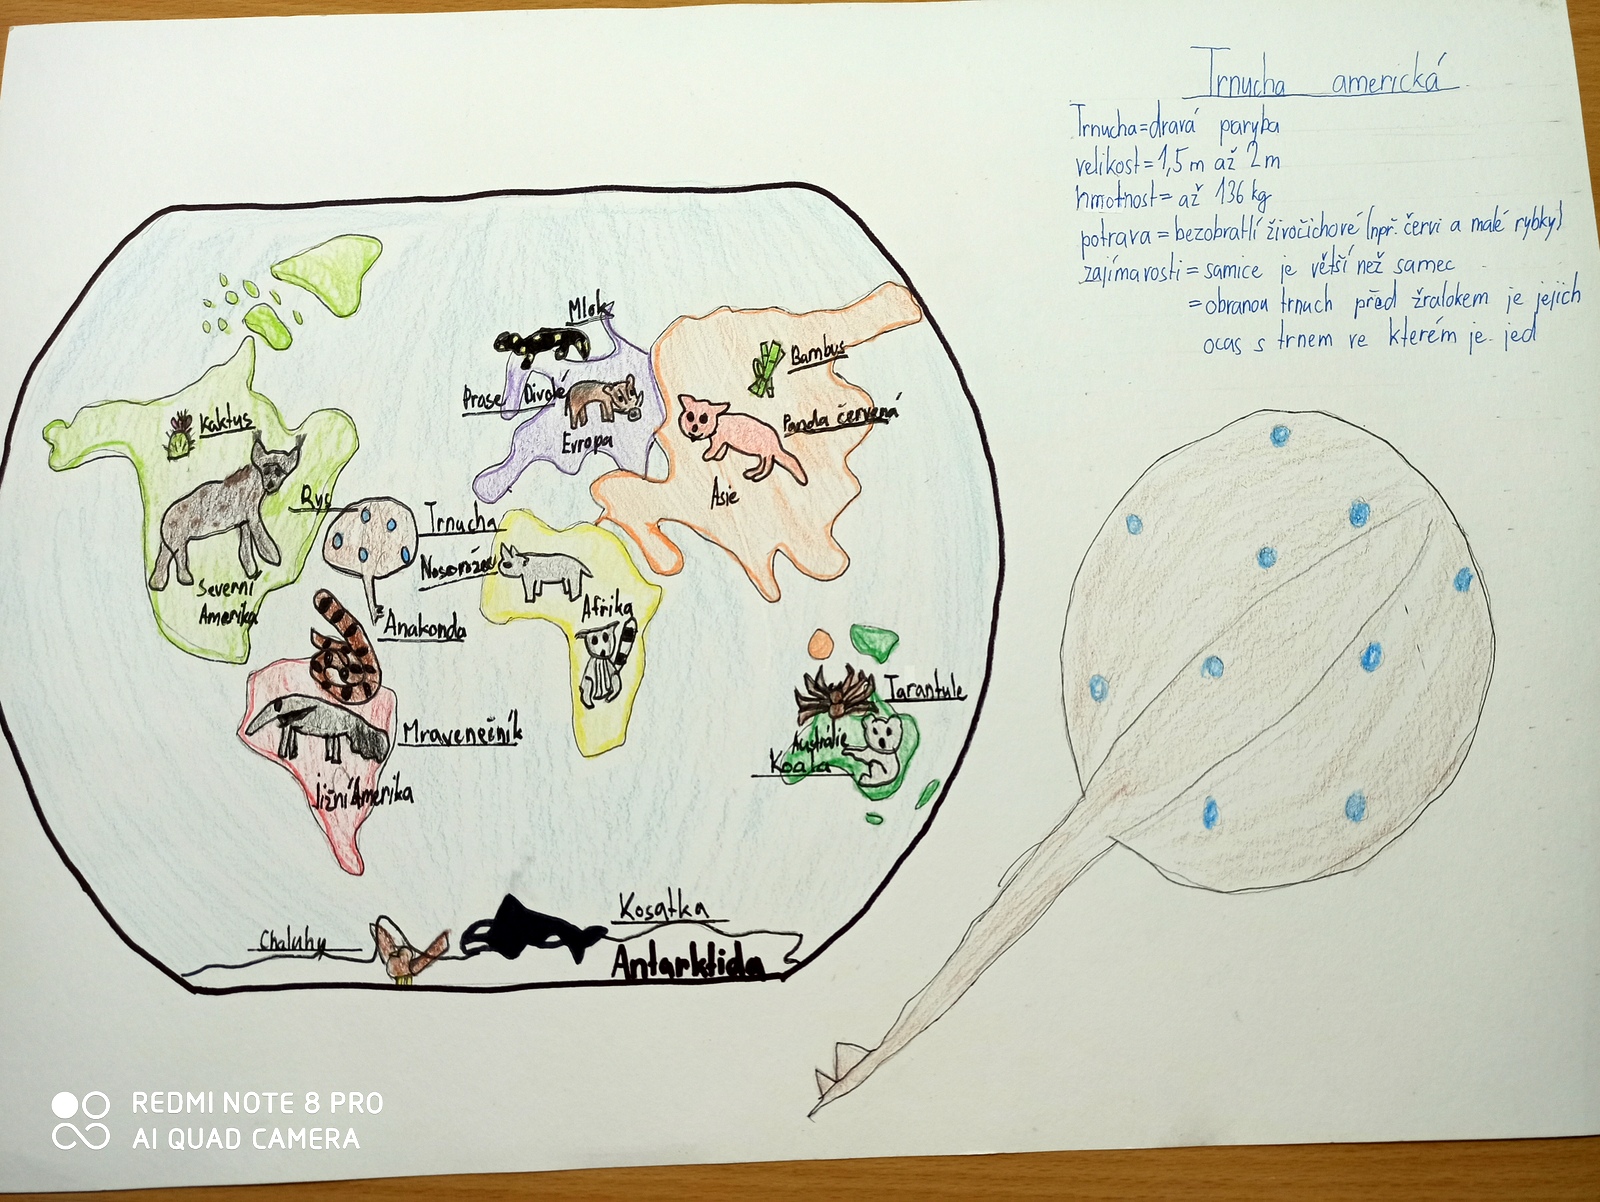 Trnucha americká
Trnucha=dravá paryba
velikost=1,5 m až 2 m
hmotnost= až 136 kg
potrava = bezobratlí živočichové (npř. červi a malé rybky)
zajímavosti = samice je větší než samec
= obranou trnuch před žralokem je jejich
ocas s trnem ve kterém je jed
Mlok
Bambus
Prase Divoké
Kaktus
Panda červená
Evropa
Asie
Rys
Trnucha
Nosorožec
Severní
Amerika
Afrika
Anakonda
Tarantule
Mravenečník
Austrálie
Koala
Jižní Amerika
Kosatka
Chaluhy
Antarktida
REDMI NOTE 8 PRO
AI QUAD CAMERA